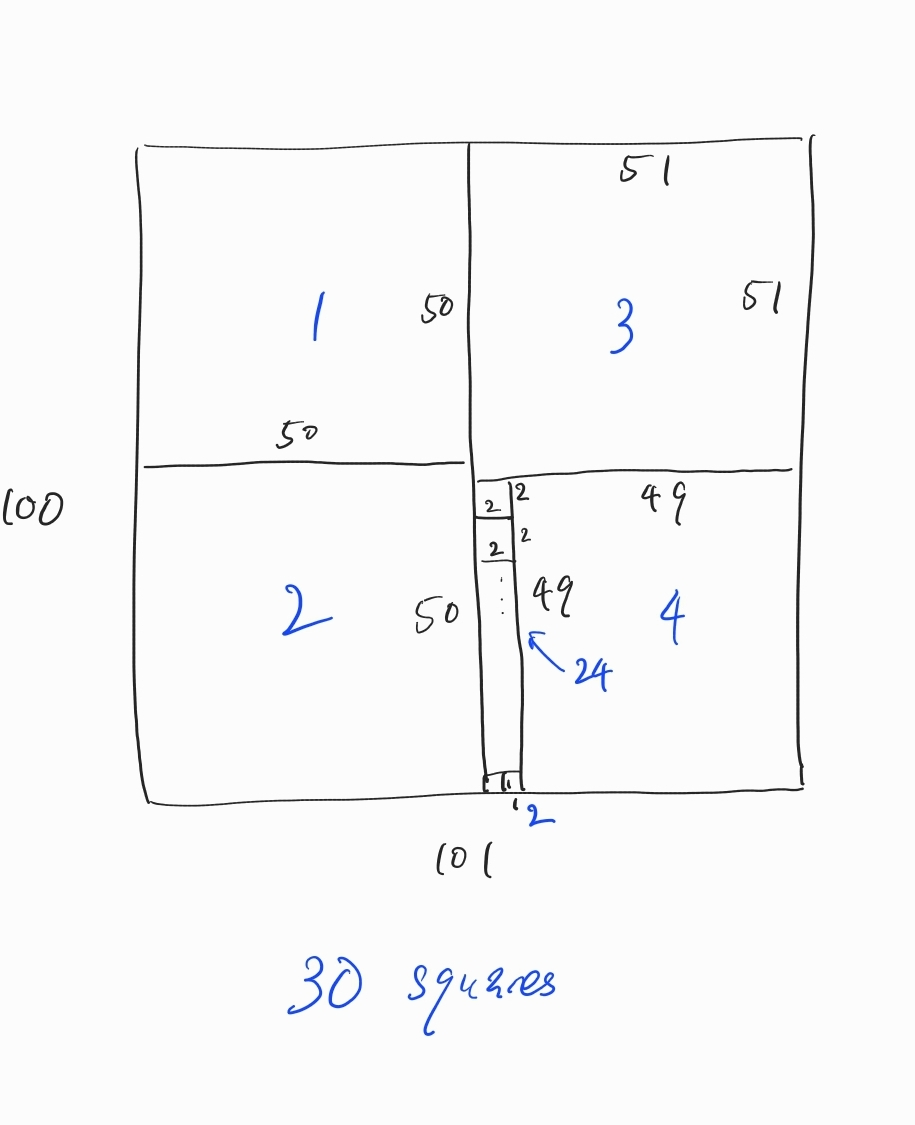 51
1
50
3
51
50
100
2
2
49
2
2
2
50
49
4
24
1
1
2
101
30 squares